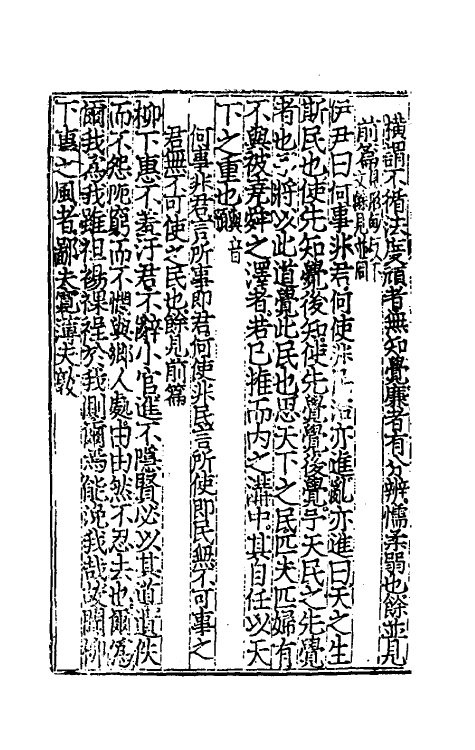 橫謂不循法度頑者無知覺廉者有分辨懦柔弱也餘並見
前篇
伊尹曰何事非君何使非治亦進亂亦進曰天之生
斯民也使先知覺後知使先覺覺後覺予天民之先覺
者也予將以此道覺此民也思天下之民匹夫匹婦有
不與被堯舜之澤者若已推而内之溝中其自任以天
下之重也音
何事非君言所事即君何使非民言所使即民無不可事之
君無不可使之民也餘見前篇
柳下惠不羞汙君不辭小官進不隱賢必以其道遺佚
而不怨阨窮而不憫與鄉人處由由然不忍去也爾為
爾我為我雖袒裼裸裎於我側爾焉能浼我哉故聞柳
下惠之風者鄙夫寬薄夫敦